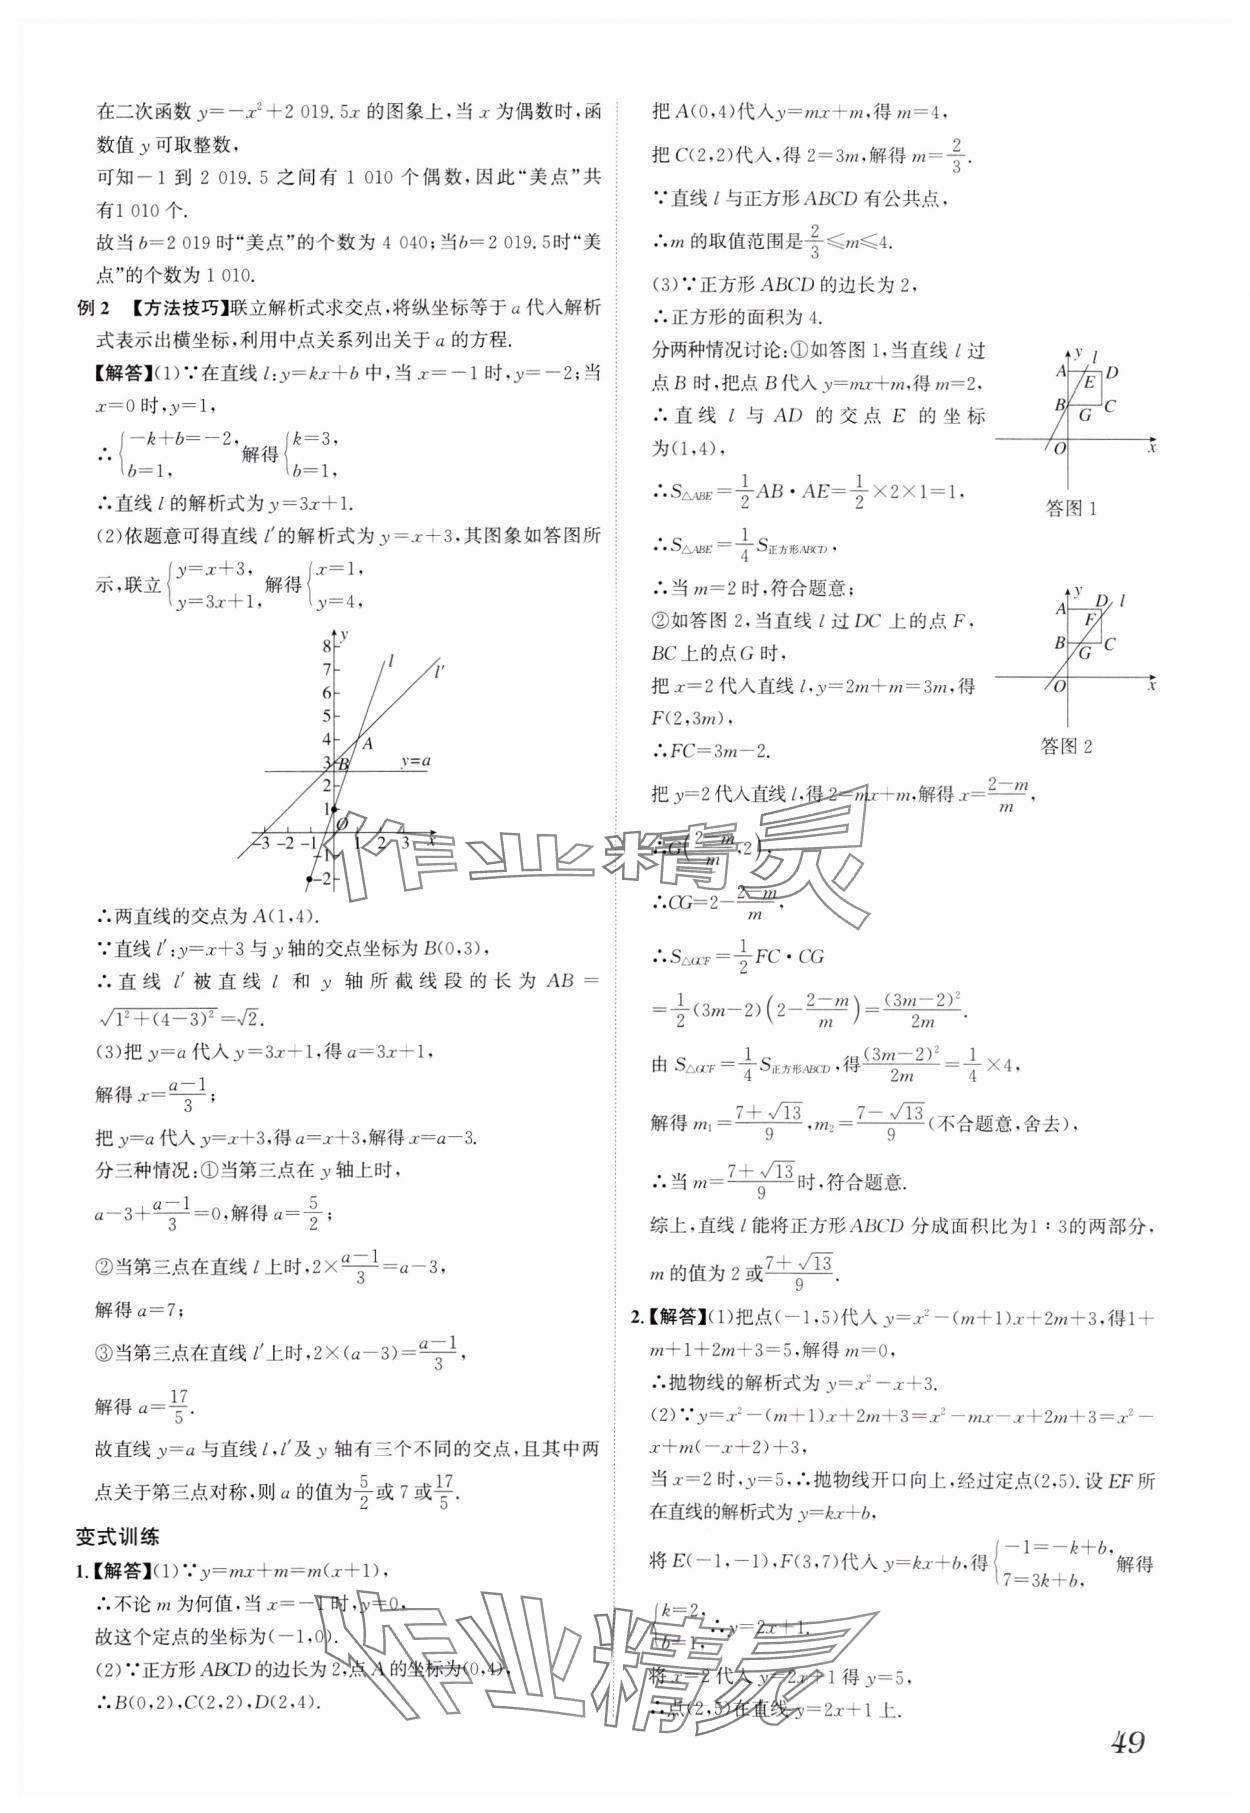 在二次函数 y=−x²+2 019.5x 的图象上,当 x 为偶数时,函
数值 y 可取整数,
可知−1 到 2 019.5 之间有 1 010 个偶数,因此“美点”共
有1 010 个.
故当 b=2 019 时“美点”的个数为 4 040;当b=2 019.5时“美
点”的个数为 1 010.
例 2 【方法技巧】联立解析式求交点,将纵坐标等于 a 代入解析
式表示出横坐标,利用中点关系列出关于 a 的方程.
【解答】(1)∵在直线 l:y=kx+b 中,当 x=−1 时,y=−2;当
x=0 时,y=1,
∴{−k+b=−2, b=1, 解得{k=3, b=1,
∴直线 l 的解析式为 y=3x+1.
(2)依题意可得直线 l′的解析式为 y=x+3,其图象如答图所
示,联立{y=x+3, y=3x+1, 解得{x=1, y=4,
y
8
7
6
5
4
3
2
1
−1
−2
−3 −2 −1 O 1 2 3 x
l
l′
A
B
y=a
∴两直线的交点为 A(1,4).
∵直线 l′:y=x+3 与 y 轴的交点坐标为 B(0,3),
∴直线 l′ 被直线 l 和 y 轴所截线段的长为 AB=
√(1²+(4−3)²)=√2.
(3)把 y=a 代入 y=3x+1,得 a=3x+1,
解得 x=(a−1)/3;
把 y=a 代入 y=x+3,得 a=x+3,解得 x=a−3.
分三种情况:①当第三点在 y 轴上时,
a−3+(a−1)/3=0,解得 a=5/2;
②当第三点在直线 l 上时,2×(a−1)/3=a−3,
解得 a=7;
③当第三点在直线 l′上时,2×(a−3)=(a−1)/3,
解得 a=17/5.
故直线 y=a 与直线 l,l′及 y 轴有三个不同的交点,且其中两
点关于第三点对称,则 a 的值为5/2或 7 或17/5.
变式训练
1.【解答】(1)∵y=mx+m=m(x+1),
∴不论 m 为何值,当 x=−1 时,y=0,
故这个定点的坐标为(−1,0).
(2)∵正方形 ABCD 的边长为 2,点 A 的坐标为(0,4),
∴B(0,2),C(2,2),D(2,4).
把 A(0,4)代入y=mx+m,得 m=4,
把 C(2,2)代入,得 2=3m,解得 m=2/3.
∵直线 l 与正方形 ABCD 有公共点,
∴m 的取值范围是2/3≤m≤4.
(3)∵正方形 ABCD 的边长为 2,
∴正方形的面积为 4.
分两种情况讨论:①如答图 1,当直线 l 过
点 B 时,把点 B代入 y=mx+m,得 m=2,
∴直线 l 与 AD 的交点 E 的坐标
为(1,4),
∴S△ABE=1/2 AB·AE=1/2×2×1=1,
∴S△ABE=1/4 S正方形ABCD,
∴当 m=2 时,符合题意;
y l A D E B G C O x
答图 1
②如答图 2,当直线 l 过 DC 上的点 F,
BC 上的点G 时,
把 x=2 代入直线 l,y=2m+m=3m,得
F(2,3m),
∴FC=3m−2.
y A D l F B G C O x
答图 2
把 y=2代入直线 l,得 2=mx+m,解得 x=(2−m)/m,
∴G((2−m)/m,2),
∴CG=2−(2−m)/m,
∴S△GCF=1/2 FC·CG
=1/2(3m−2)(2−(2−m)/m)=(3m−2)²/2m.
由 S△GCF=1/4 S正方形ABCD,得(3m−2)²/2m=1/4×4,
解得 m₁=(7+√13)/9,m₂=(7−√13)/9(不合题意,舍去),
∴当 m=(7+√13)/9时,符合题意.
综上,直线 l 能将正方形 ABCD 分成面积比为1∶3的两部分,
m 的值为 2 或(7+√13)/9.
2.【解答】(1)把点(−1,5)代入 y=x²−(m+1)x+2m+3,得1+
m+1+2m+3=5,解得 m=0,
∴抛物线的解析式为 y=x²−x+3.
(2)∵y=x²−(m+1)x+2m+3=x²−mx−x+2m+3=x²−
x+m(−x+2)+3,
当 x=2 时,y=5,∴抛物线开口向上,经过定点(2,5).设 EF 所
在直线的解析式为 y=kx+b,
将 E(−1,−1),F(3,7)代入 y=kx+b,得{−1=−k+b, 7=3k+b, 解得
{k=2, b=1, ∴y=2x+1.
将 x=2 代入 y=2x+1 得 y=5,
∴点(2,5)在直线 y=2x+1 上.
49
作业精灵
作业精灵